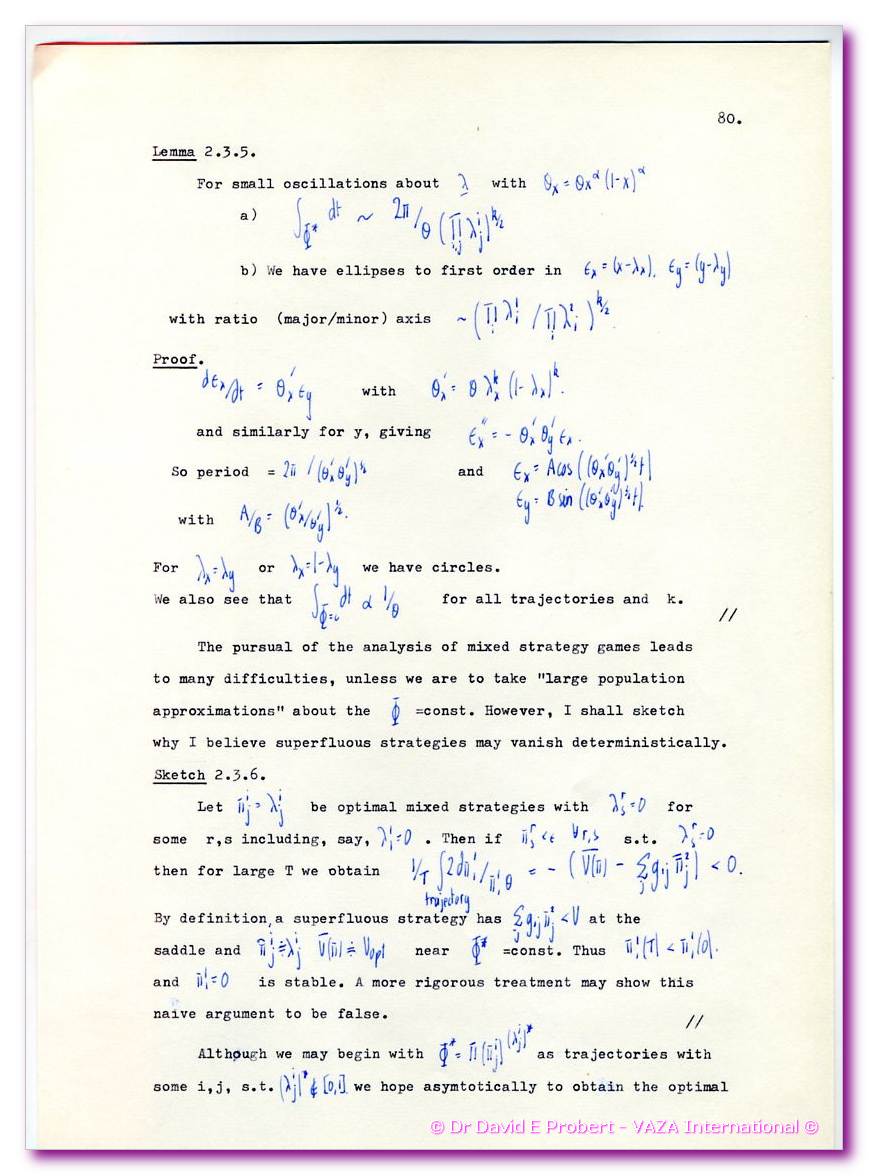 80.
Lemma 2.3.5.
For small oscillations about λ with θₓ = θx^α (1-x)^α
a) ∫_Φ* dt ~ 2π/θ (∏_{i,j} λ_j^i)^{k/2}
b) We have ellipses to first order in ϵₓ = (x-λₓ), ϵ_y = (y-λ_y)
with ratio (major/minor) axis ~ (∏_i λ_i^1 / ∏_i λ_i^2)^{k/2}
Proof.
dϵₓ/dt = θ'ₓ ϵ_y with θ'ₓ = θ λₓ^k (1-λₓ)^k.
and similarly for y, giving ϵₓ'' = - θ'ₓ θ'_y ϵₓ.
So period = 2π / (θ'ₓθ'_y)^½ and ϵₓ = A cos((θ'ₓθ'_y)^½ t)
ϵ_y = B sin((θ'ₓθ'_y)^½ t)
with A/B = (θ'ₓ/θ'_y)^½.
For λₓ = λ_y or λₓ = 1-λ_y we have circles.
We also see that ∫_{Φ=c} dt ∝ 1/θ for all trajectories and k.
//
The pursual of the analysis of mixed strategy games leads
to many difficulties, unless we are to take "large population
approximations" about the Φ =const. However, I shall sketch
why I believe superfluous strategies may vanish deterministically.
Sketch 2.3.6.
Let π_j^i = λ_j^i be optimal mixed strategies with λ_s^r = 0 for
some r,s including, say, λ_1^1 = 0 . Then if π_s^r < ϵ ∀ r,s s.t. λ_s^r = 0
then for large T we obtain 1/T ∫ 2dπ_1^1/π_1^1 θ = - (V̄(π) - Σ_j g_{1j} π_j^2) < 0.
trajectory
By definition, a superfluous strategy has Σ_j g_{1j} π_j^2 < V at the
saddle and π_j^i ≑ λ_j^i V̄(π) ≑ V_opt near Φ* =const. Thus π_1^1(T) < π_1^1(0).
and π_1^1 = 0 is stable. A more rigorous treatment may show this
naive argument to be false.
//
Although we may begin with Φ* = ∏(π_j^i)^{(λ_j^i)*} as trajectories with
some i,j, s.t. (λ_j^i)* ∉ [0,1] we hope asymtotically to obtain the optimal
© Dr David E Probert - VAZA International ©